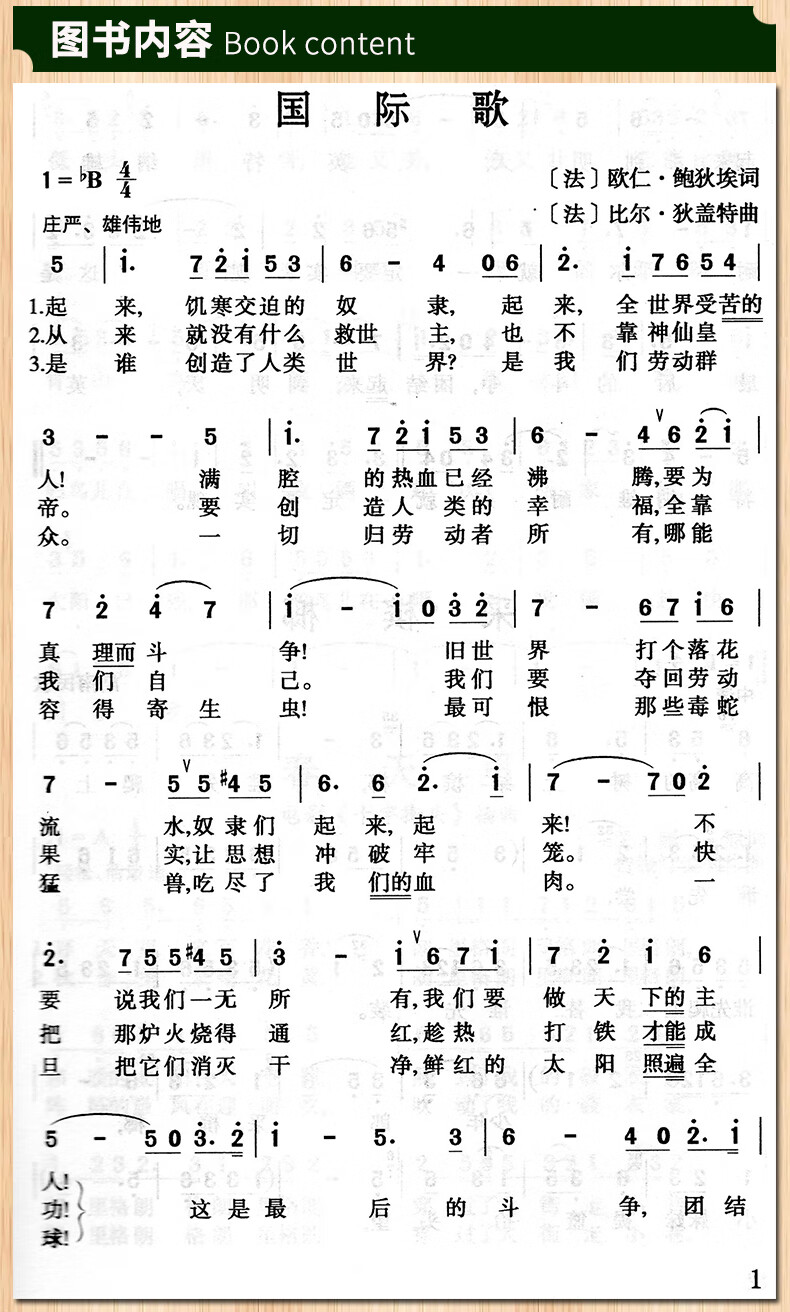 图书内容 Book content
国 际 歌
1=♭B 4/4
〔法〕欧仁·鲍狄埃词
庄严、雄伟地
〔法〕比尔·狄盖特曲
5 | i. 7 2 i 5 3 | 6 - 4 0 6 | 2. i 7 6 5 4 |
1.起 来, 饥寒交迫的 奴 隶, 起 来, 全 世界受苦的
2.从 来 就没有什么 救世 主, 也 不 靠 神仙皇
3.是 谁 创造了人类 世 界? 是 我 们 劳动群
3 - - 5 | i. 7 2 i 5 3 | 6 - 4 6 2 i |
人! 满 腔 的热血已经 沸 腾,要为
帝。 要 创 造人 类的 幸 福,全靠
众。 一 切 归劳 动者 所 有,哪能
7 2 4 7 | i - i 0 3 2 | 7 - 6 7 i 6 |
真 理而斗 争! 旧世 界 打个落花
我 们 自 己。 我们 要 夺回劳动
容 得 寄 生 虫! 最可 恨 那些毒蛇
7 - 5 5 #4 5 | 6. 6 2. i | 7 - 7 0 2 |
流 水,奴 隶们 起 来,起 来! 不
果 实,让 思想 冲 破 牢 笼。 快
猛 兽,吃 尽了 我 们的血 肉。 一
2. 7 5 5 #4 5 | 3 - i 6 7 i | 7 2 i 6 |
要 说我们一无 所 有,我们要 做 天 下的主
把 那炉火烧得 通 红,趁热 打 铁 才能成
旦 把它们消灭 干 净,鲜红的 太 阳 照遍全
5 - 5 0 3. 2 | i - 5. 3 | 6 - 4 0 2. i |
人!
功! 这是最 后 的 斗 争, 团结
球!
1